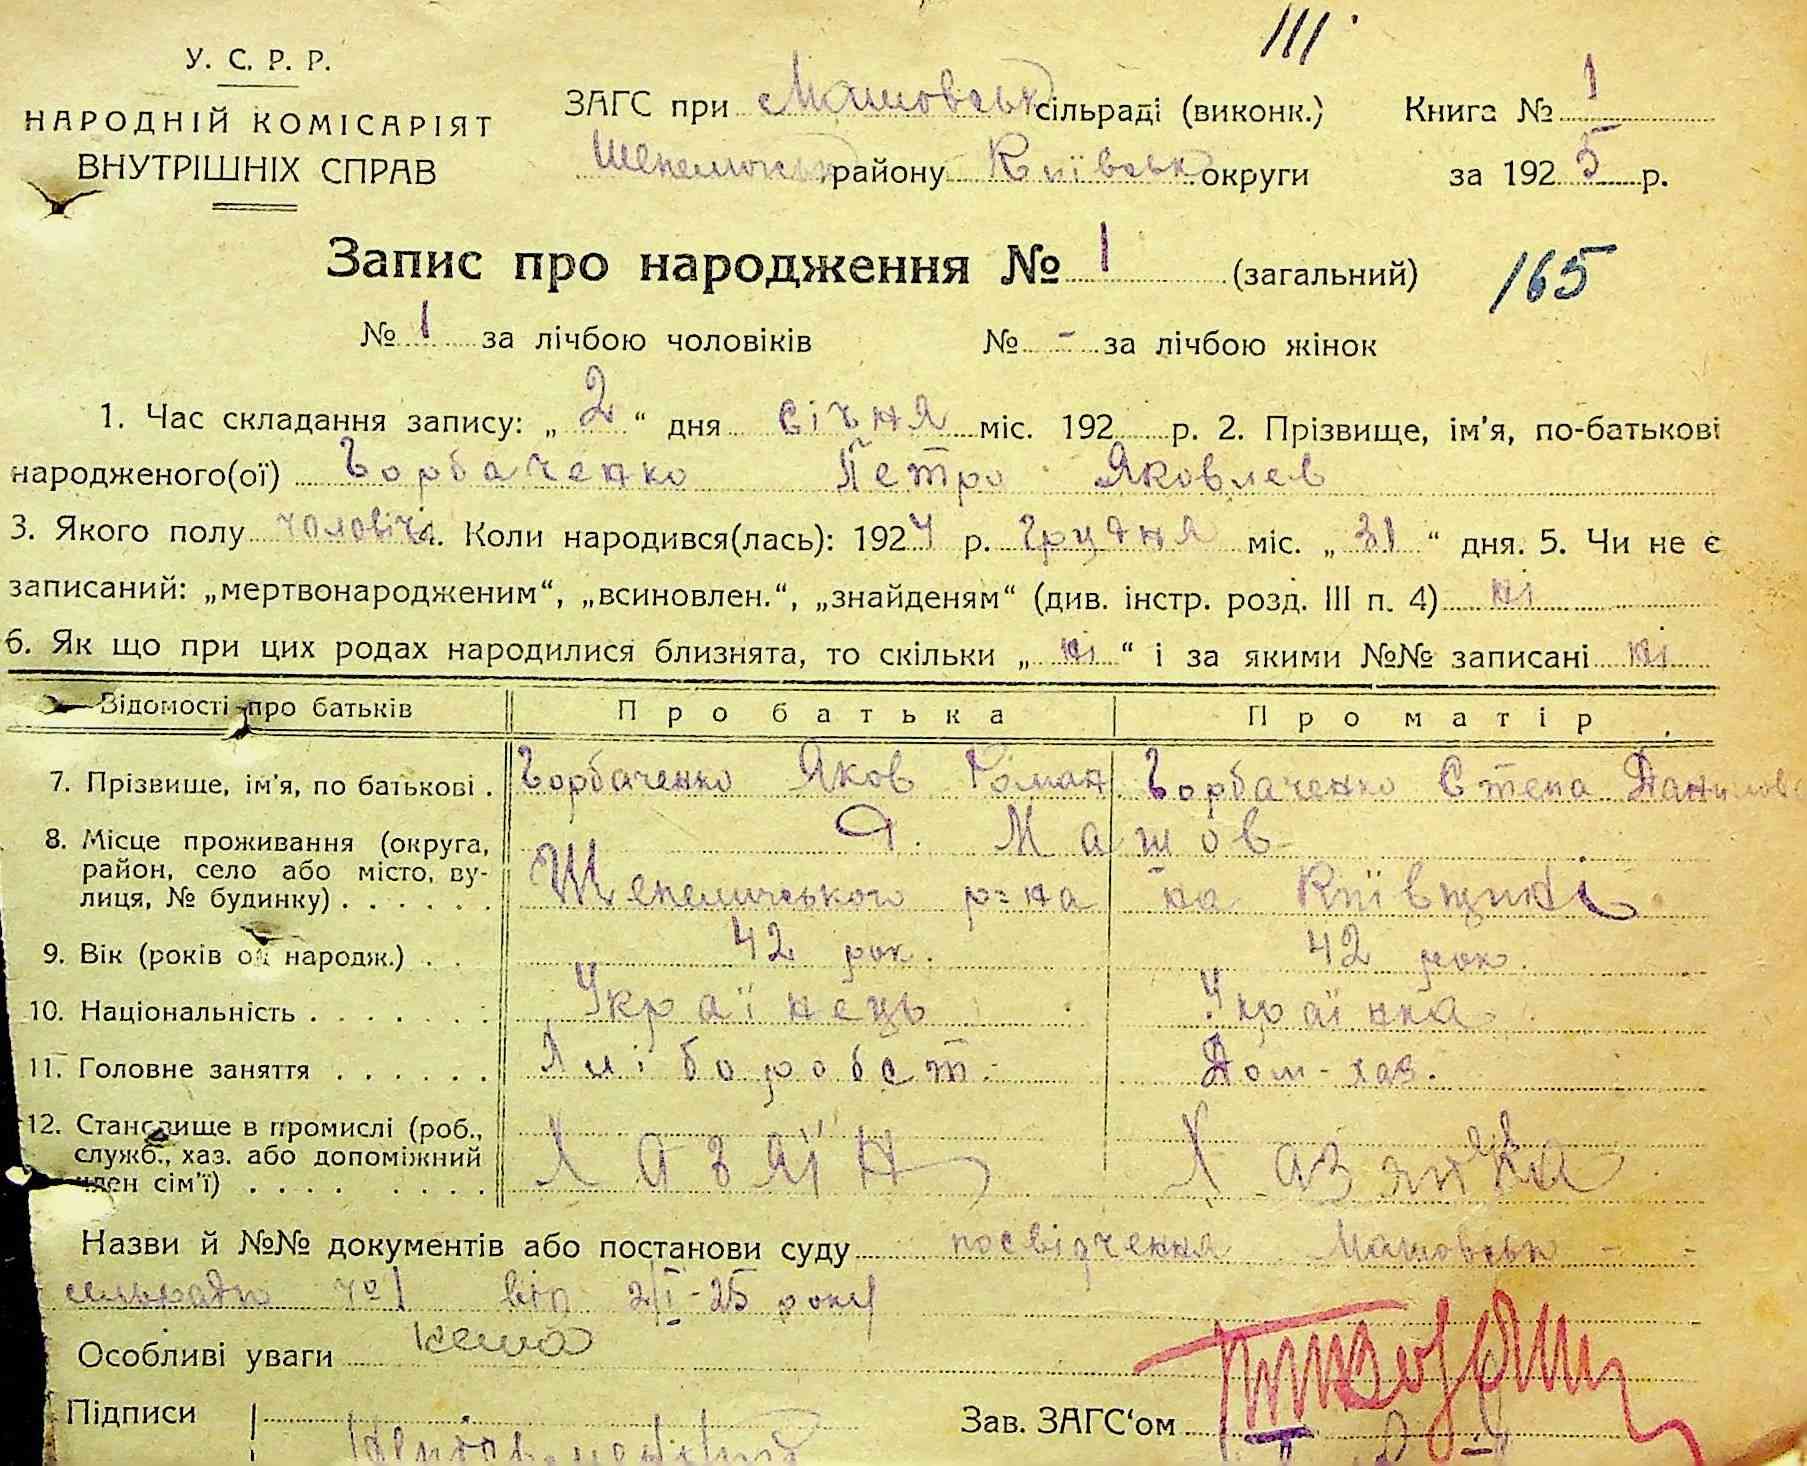 III
У. С. Р. Р.
НАРОДНІЙ КОМІСАРІЯТ
ВНУТРІШНІХ СПРАВ
ЗАГС при Машовськ сільраді (виконк.) Книга № 1
Шепелицьк району Київськ округи за 1925 р.
Запис про народження № 1 (загальний) 165
№ 1 за лічбою чоловіків № - за лічбою жінок
1. Час складання запису: „ 2 “ дня Січня міс. 192 р. 2. Прізвище, ім’я, по-батькові
народженого(ої) Горбаченко Петро Яковлев
3. Якого полу чоловіч. Коли народився(лась): 1924 р. Грудня міс. „ 31 “ дня. 5. Чи не є
записаний: „мертвонародженим“, „всиновлен.“, „знайденям“ (див. інстр. розд. III п. 4) ні
6. Як що при цих родах народилися близнята, то скільки „ ні “ і за якими №№ записані ні
Відомості про батьків Про батька Про матір
7. Прізвище, ім’я, по батькові . Горбаченко Яков Роман Горбаченко Степа Данилова
8. Місце проживання (округа, район, село або місто, вулиця, № будинку) . . . . . . Машов
Шепелицького р-на на Київщині
9. Вік (років од народж.) . . 42 рок. 42 рок.
10. Національність . . . . . . . Українець Українка
11. Головне заняття . . . . . . Хліборобст. Дом-хаз.
12. Становище в промислі (роб., служб., хаз. або допоміжний член сім’ї) . . . . . . . . Хазяїн Хазяйка
Назви й №№ документів або постанови суду посвідчення Машовськ -
сельради №1 від 2/I-25 року
Особливі уваги нема
Підписи Зав. ЗАГС‘ом